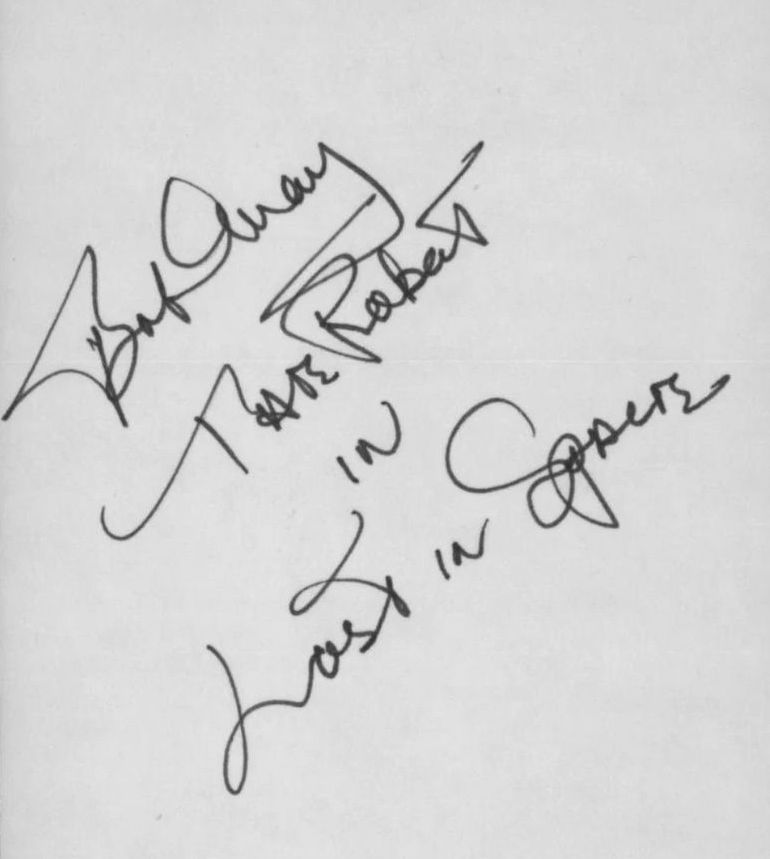 Bob May
THE Robot
IN
Lost IN SPACE